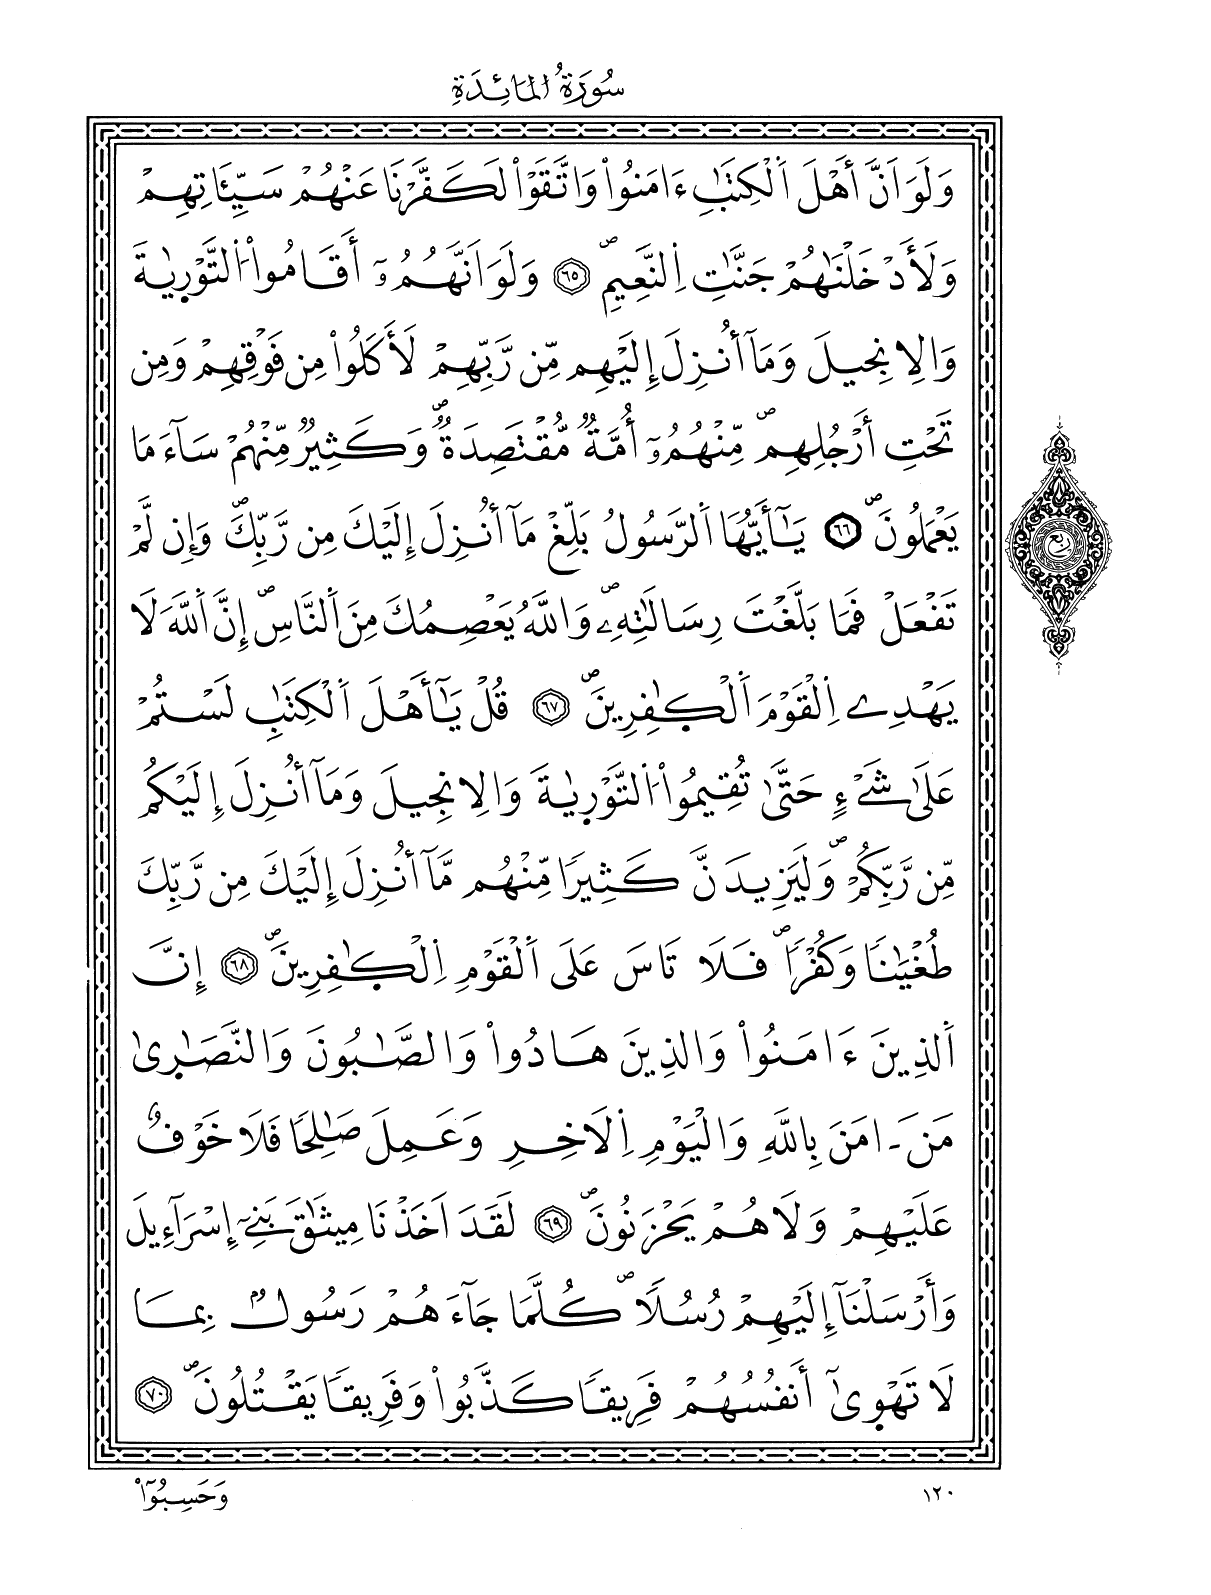 سُورَةُ المَائِدَةِ
وَلَوَ اَنَّ أَهْلَ اَلْكِتَٰبِ ءَامَنُواْ وَاتَّقَوْاْ لَكَفَّرْنَا عَنْهُمْ سَيِّـَٔاتِهِمْ
وَلَأَدْخَلْنَٰهُمْ جَنَّٰتِ اِلنَّعِيمِۖ ٦٥ وَلَوَ اَنَّهُمُۥٓ أَقَامُواْ اُلتَّوْر۪يٰةَ
وَالِانجِيلَ وَمَآ أُنزِلَ إِلَيْهِم مِّن رَّبِّهِمْ لَأَكَلُواْ مِن فَوْقِهِمْ وَمِن
تَحْتِ أَرْجُلِهِمۖ مِّنْهُمُۥٓ أُمَّةٞ مُّقْتَصِدَةٞۖ وَكَثِيرٞ مِّنْهُمْ سَآءَ مَا
يَعْمَلُونَۖ ٦٦ يَٰٓأَيُّهَا اَلرَّسُولُ بَلِّغْ مَآ أُنزِلَ إِلَيْكَ مِن رَّبِّكَۖ وَإِن لَّمْ
تَفْعَلْ فَمَا بَلَّغْتَ رِسَالَٰتِهِۦۖ وَاللَّهُ يَعْصِمُكَ مِنَ اَلنَّاسِۖ إِنَّ اَللَّهَ لَا
يَهْدِے اِلْقَوْمَ اَلْكٰ۪فِرِينَۖ ٦٧ قُلْ يَٰٓأَهْلَ اَلْكِتَٰبِ لَسْتُمْ
عَلَىٰ شَےْءٍ حَتَّىٰ تُقِيمُواْ اُلتَّوْر۪يٰةَ وَالِانجِيلَ وَمَآ أُنزِلَ إِلَيْكُم
مِّن رَّبِّكُمْۖ وَلَيَزِيدَنَّ كَثِيرٗا مِّنْهُم مَّآ أُنزِلَ إِلَيْكَ مِن رَّبِّكَ
طُغْيَٰنٗا وَكُفْرٗاۖ فَلَا تَاسَ عَلَى اَلْقَوْمِ اِلْكٰ۪فِرِينَۖ ٦٨ إِنَّ
اَلذِينَ ءَامَنُواْ وَالذِينَ هَادُواْ وَالصَّٰبُونَ وَالنَّصَٰر۪ىٰ
مَنَ ـ امَنَ بِاللَّهِ وَالْيَوْمِ اِلَاخِرِ وَعَمِلَ صَٰلِحٗا فَلَا خَوْفٌ
عَلَيْهِمْ وَلَا هُمْ يَحْزَنُونَۖ ٦٩ لَقَدَ اَخَذْنَا مِيثَٰقَ بَنِےٓ إِسْرَآءِيلَ
وَأَرْسَلْنَآ إِلَيْهِمْ رُسُلٗاۖ كُلَّمَا جَآءَهُمْ رَسُولُۢ بِمَا
لَا تَهْو۪ىٰٓ أَنفُسُهُمْ فَرِيقٗا كَذَّبُواْ وَفَرِيقٗا يَقْتُلُونَۖ ٧٠
ربع
وَحَسِبُوٓاْ
١٢٠